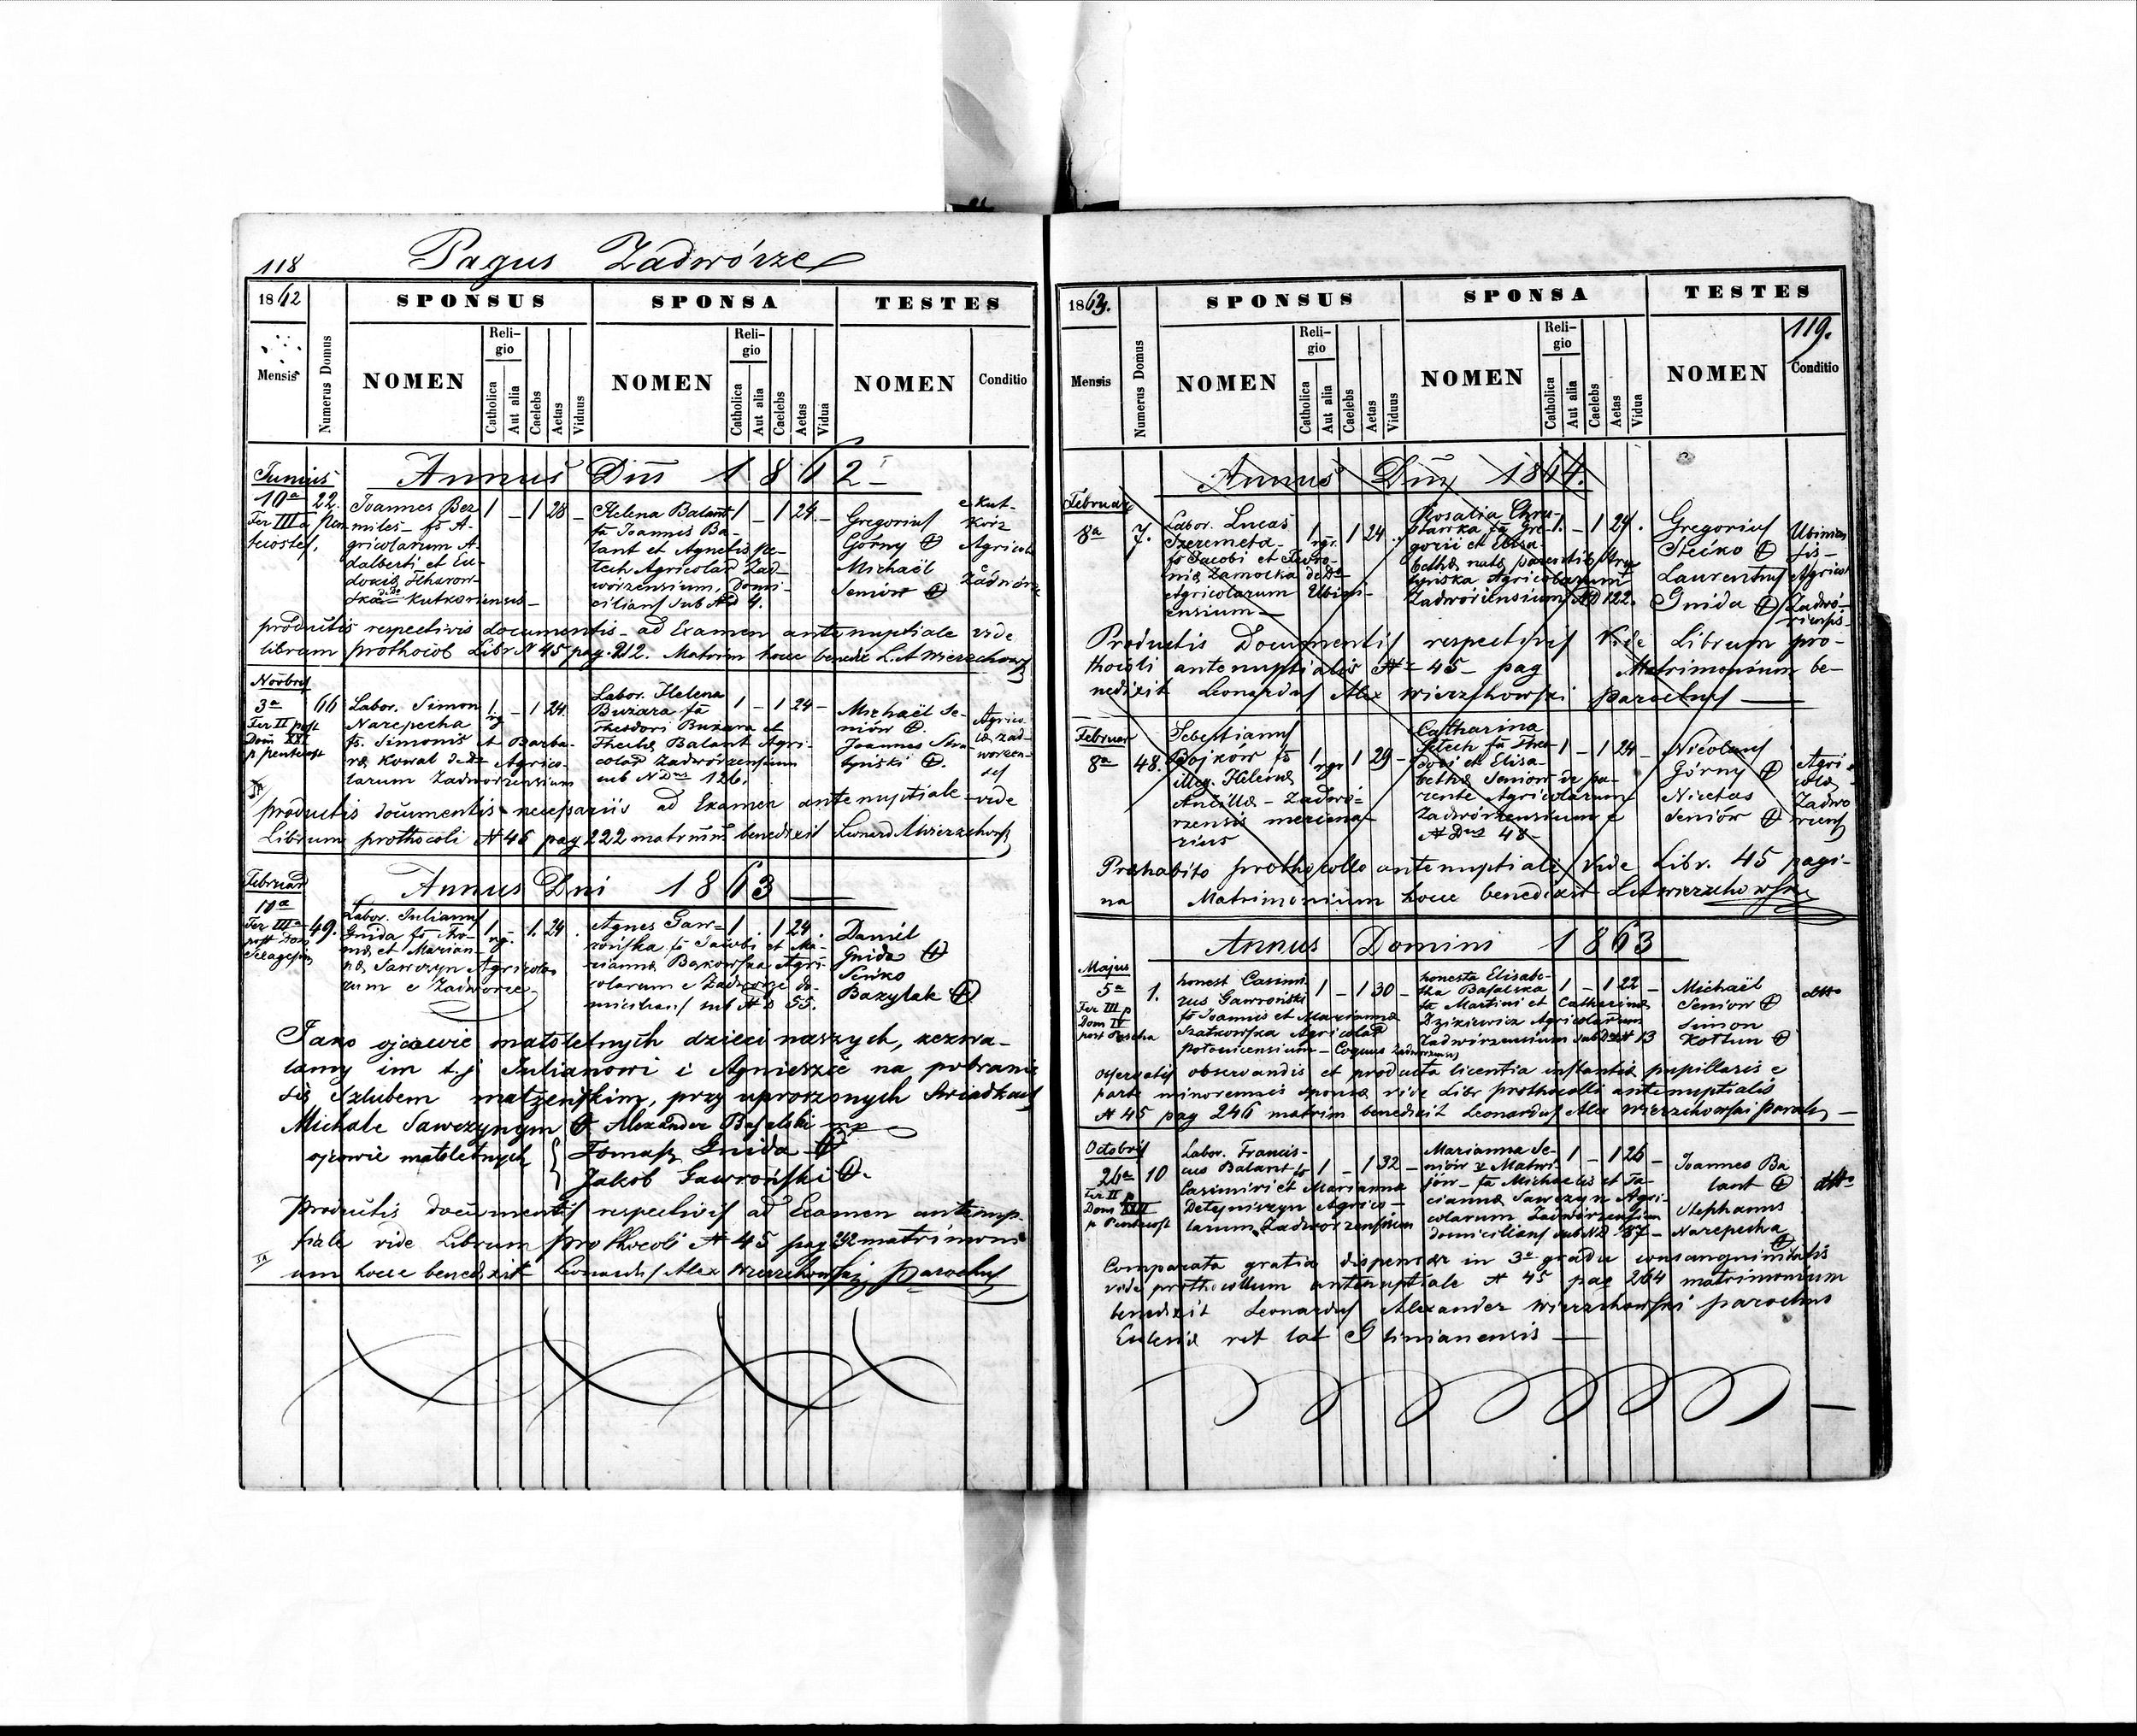 118
Pagus Zadwórze
1862
SPONSUS
SPONSA
TESTES
Mensis
Numerus Domus
NOMEN
Reli-
gio
Catholica
Aut alia
Caelebs
Aetas
Viduus
NOMEN
Reli-
gio
Catholica
Aut alia
Caelebs
Aetas
Vidua
NOMEN
Conditio
Annus Dni 1862
Junius
10a 22.
Fer III a Pen
tecostes.
Joannes Bez
miles - fs A-
gricolarum A-
dalberti et Lu-
dovicæ
Kutkoriensis
1 - 1 28 -
Helena Balant
fa Joannis Ba-
lant et Agnetis Pe-
tech Agricolar Zad-
worzensium, Domi-
cilians sub Nd 4.
1 - 1 24 -
Gregorius
Górny
Michaël
Seniow
e Kut-
korz
Agricola
e
Zadworze
productis respectivis documentis - ad Examen ante nuptiale vide
librum prothocol Libr N 45 pag. 212. Matrim hocce benedix L.A Wierzchowski
Novbris
3a 66
Fer II post
Dom XXI
p pentecost
Labor. Simon
Narepecha
fs. Simonis et Barba-
ræ Kowal de Do Agrico-
larum Zadworzensium
1. rg - 1 24
Labor. Helena
Buzara fa
Theodori Buzara et
Theclæ Balant Agri-
colar Zadwórzensium
sub N Dus 126.
1 - 1 24 -
Michaël Se-
niów
Joannes
Agrico
læ zad-
worzen-
ses
productis documentis necessariis ad Examen ante nuptiale vide
Librum prothocoli N 45 pag 222 matrim benedixit Leonard A Wierzchowski
Annus Dni 1863
Februar
10a
Fer IIIa 49.
post Dom
Sexagesim
Labor. Julianus
Gnida fs Tho-
mæ et Marian-
næ Sawczyn Agricola-
rum e Zadworze
1 rg. - 1. 24.
Agnes Gaw-
rońska fa Jacobi et Ma-
riannæ Baskowska Agri-
colarum e Zadworze do-
micilians sub N D 55.
1. . 1 24.
Daniel
Gnida
Seńko
Bazylak
Jako ojcowie małoletnych dzieci naszych, zezwa-
lamy im t.j Julianowi i Agnieszce na pobranie
się Szlubem małżeńskim, przy uproszonych Swiadkach
Michale Sawczynym Alexander Basalski mp
ojcowie małoletnych
Tomasz Gnida
Jakob Gawroński
Productis documentis respectivis ad Examen antenup-
tiale vide Librum Prothocoli N 45 pag 232 matrimoni
um hocce benedixit Leonardus Alex Wierzchowski Parochus
1863.
SPONSUS
SPONSA
TESTES
119.
Mensis
Numerus Domus
NOMEN
Reli-
gio
Catholica
Aut alia
Caelebs
Aetas
Viduus
NOMEN
Reli-
gio
Catholica
Aut alia
Caelebs
Aetas
Vidua
NOMEN
Conditio
Annus Dny 1864.
Februar
8a 7.
Labor. Lucas
Szeremeta
fs Jacobi et Eufro-
niæ Zamocka de Do
Agricolarum Ubini-
ensium
1 rgr. 1 24
Rosalia
fa Gre-
gorii et Elisa-
bethæ nata parentis
Agricolarum
Zadwórzensium ND 122.
1. - 1 24.
Gregorius
Stećko
Laurentius
Gnida
Agricol
Zadwó-
riensis
Productis Documentis respectivis Vide Librum pro-
thocoli antenuptialis N 45 - pag Matrimonium be-
nedixit Leonardus Alex Wierzchowski Parochus
Februar
8a 48.
Sebestianus
Bojków fs
illeg. Helenæ
Ancillæ - Zadwó-
rzensis mercena-
rius
1 rgr 1 29 -
Catharina
Petech fa Theo-
dori et Elisa-
bethæ Seniow de pa-
rente Agricolarum
Zadwórzensium e
N Dus 48 -
1 - 1 24 -
Nicolaus
Górny
Nicetas
Seniow
Agri
colæ
Zadwo
riens
Præhabito prothocollo antenuptiali Vide Libr. 45 pagi-
na Matrimonium hocce benedixit L A Wierzchowski
Annus Domini 1863
Majus
5a 1.
Fer III p
Dom IV
post Pascha
honest Casimi
rus Gawroński
fs Joannis et Mariannæ
Szatkowska Agricolar
Połonicensium - Coquus Zadworzensis
1 - 1 30 -
honesta Elisabe-
tha Basalska
fa Martini et Catharinæ
Dzikiewicz Agricolarum
Zadwórzensium sub Dus N 13
1 - 1 22 -
Michaël
Seniow
Simon
Kołtun
dtto
observatis observandis et producta licentia instantiæ pupillaris e
parte minorennis sponsæ vide Libr prothocolli antenuptialis
N 45 pag 246 matrim benedixit Leonardus Alex Wierzchowski Paroch
Octobris
26a 10
Fer II p
Dom XXII
p Pentecost
Labor. Francis-
cus Balant fs
Casimiri et Mariannæ
Detejniczyn Agrico-
larum Zadworzensium
1 - 1 32 -
Marianna Se-
niów v Matwi-
jów - fa Michaelis et Ta-
ciannæ Sawczyn Agri-
colarum Zadworzensium
domicilians sub ND 87 -
1 - 1 26 -
Joannes Ba
lant
Stephanus
Narepecha
dtto
Comparata gratia dispensæ in 3o gradu consanguinitatis
vide prothocollum antenuptiale N 45 pag 264 matrimonium
benedixit Leonardus Alexander Wierzchowski parochus
Eclesiæ rit lat Glinianensis